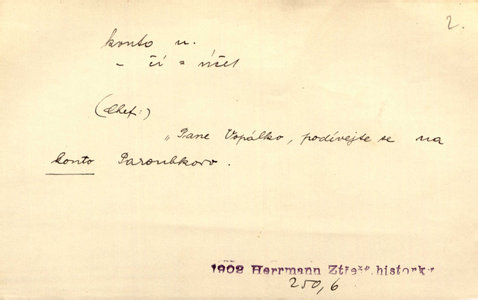 2.
konto n.
– čí = účet
(Chef:)
„Pane Vopálko, podívejte se na
konto Paroubkovo.
1902 Herrmann Ztřešť. historky
250,6